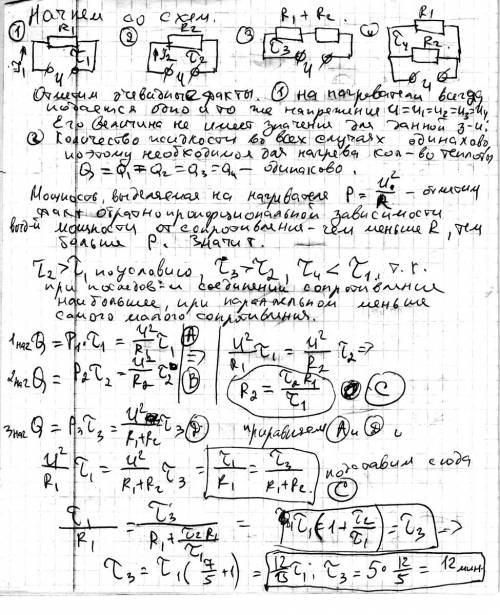 Начнем со схем.
① R₁ ② R₂ ③ R₁ + R₂ ④ R₁
J₁ τ₁ J₂ τ₂ τ₃ τ₄ R₂
U U U U
Отметим очевидные факты. ① на нагреватели всегда
подается одно и то же напряжение U=U₁=U₂=U₃=U₄
Его величина не имеет значения для данной з-и.
② Количество жидкости во всех случаях одинаково,
поэтому необходимое для нагрева кол-во теплоты
Q = Q₁ = Q₂ = Q₃ = Q₄ - одинаково.
Мощность, выделяемая на нагревателе P = U²/R - отметим
факт обратно пропорциональной зависимости
мощности от сопротивления - чем меньше R, тем
больше P. Значит.
τ₂ > τ₁ по условию, τ₃ > τ₂, τ₄ < τ₁, т.к.
при последов-м соединении сопротивление
наибольшее, при параллельном меньше
самого малого сопротивления.
1 наг Q = P₁·τ₁ = U²/R₁ τ₁ Ⓐ => U²/R₁ τ₁ = U²/R₂ τ₂ =>
2 наг Q = P₂τ₂ = U²/R₂ τ₂ Ⓑ R₂ = τ₂R₁/τ₁ Ⓒ
3 наг Q = P₃τ₃ = U²/(R₁+R₂) τ₃ Ⓓ приравняем Ⓐ и Ⓓ
U²/R₁ τ₁ = U²/(R₁+R₂) τ₃ = τ₁/R₁ = τ₃/(R₁+R₂) подставим сюда
Ⓒ
τ₁/R₁ = τ₃/(R₁ + τ₂R₁/τ₁) = τ₁(1 + τ₂/τ₁) = τ₃ =>
τ₃ = τ₁(7/5 + 1) = 12/5 τ₁; τ₃ = 5 · 12/5 = 12 мин